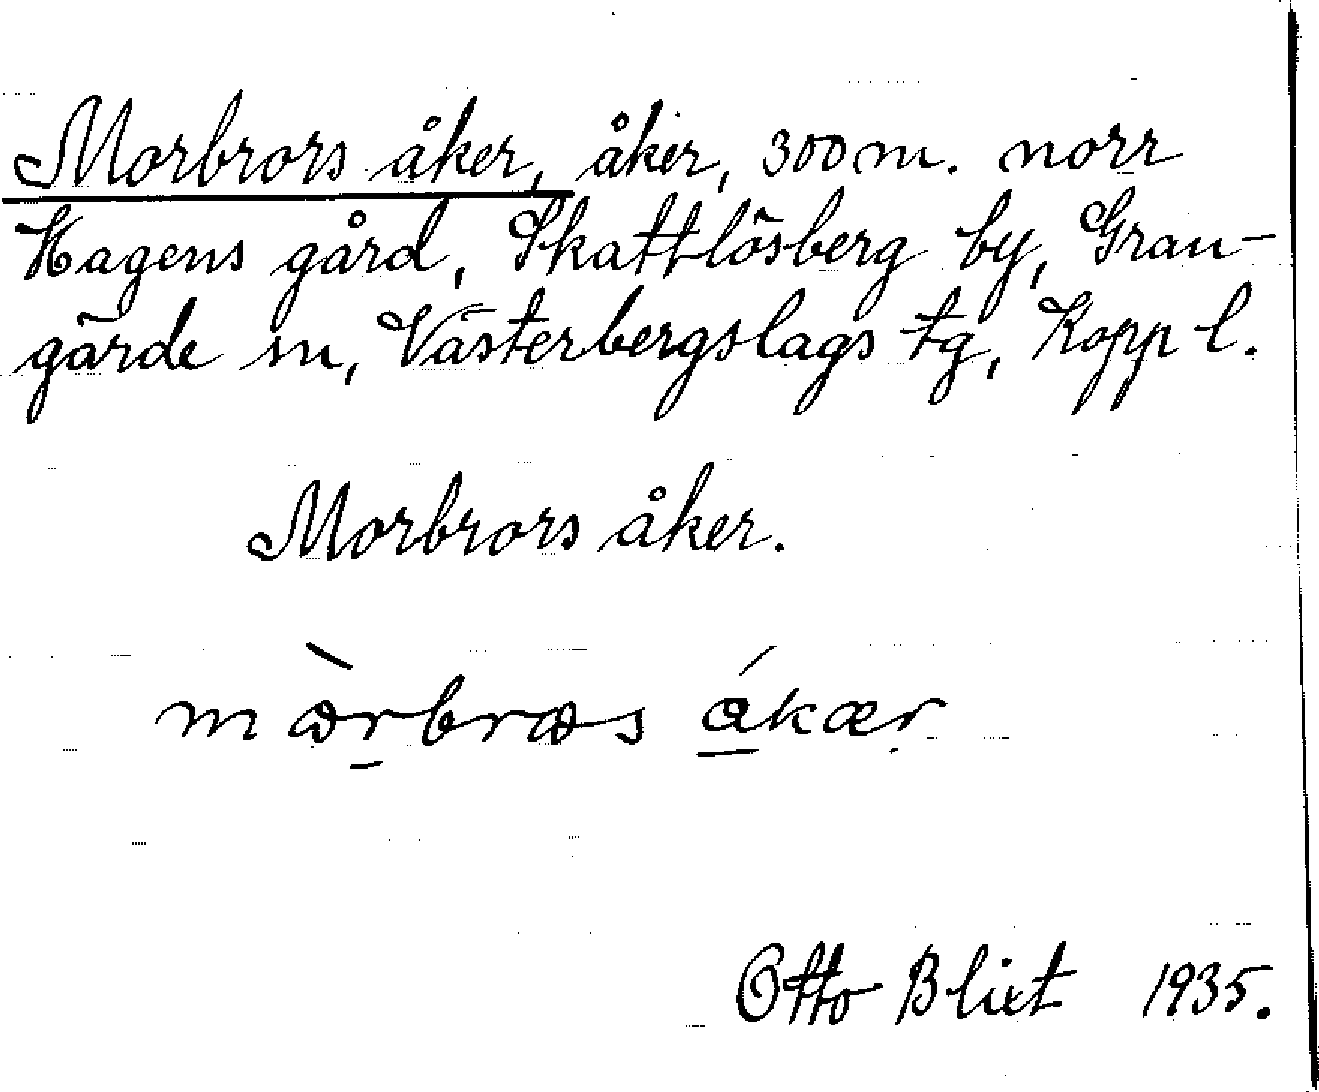 Morbrors åker, åker, 300 m. norr
Hagens gård, Skattlösberg by, Gran-
gärde sn, Västerbergslags tg, Kopp l.
Morbrors åker.
Otto Blixt 1935.